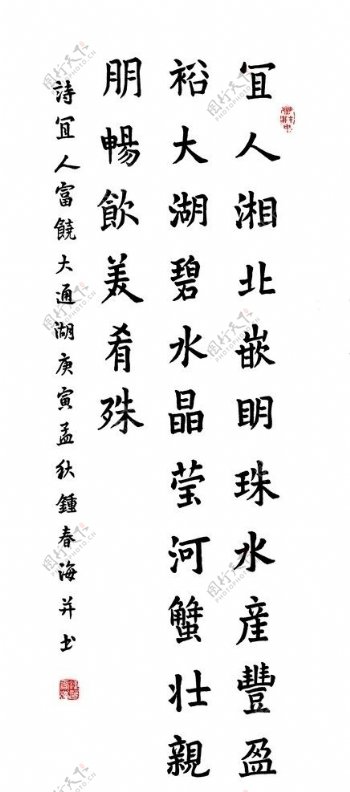 宜人湘北嵌明珠水産豐盈
裕大湖碧水晶莹河蟹壮親
朋暢飲美肴殊
詩宜人富饒大通湖庚寅孟秋鍾春海并书
图行天下
PHOTOPHOTO.CN